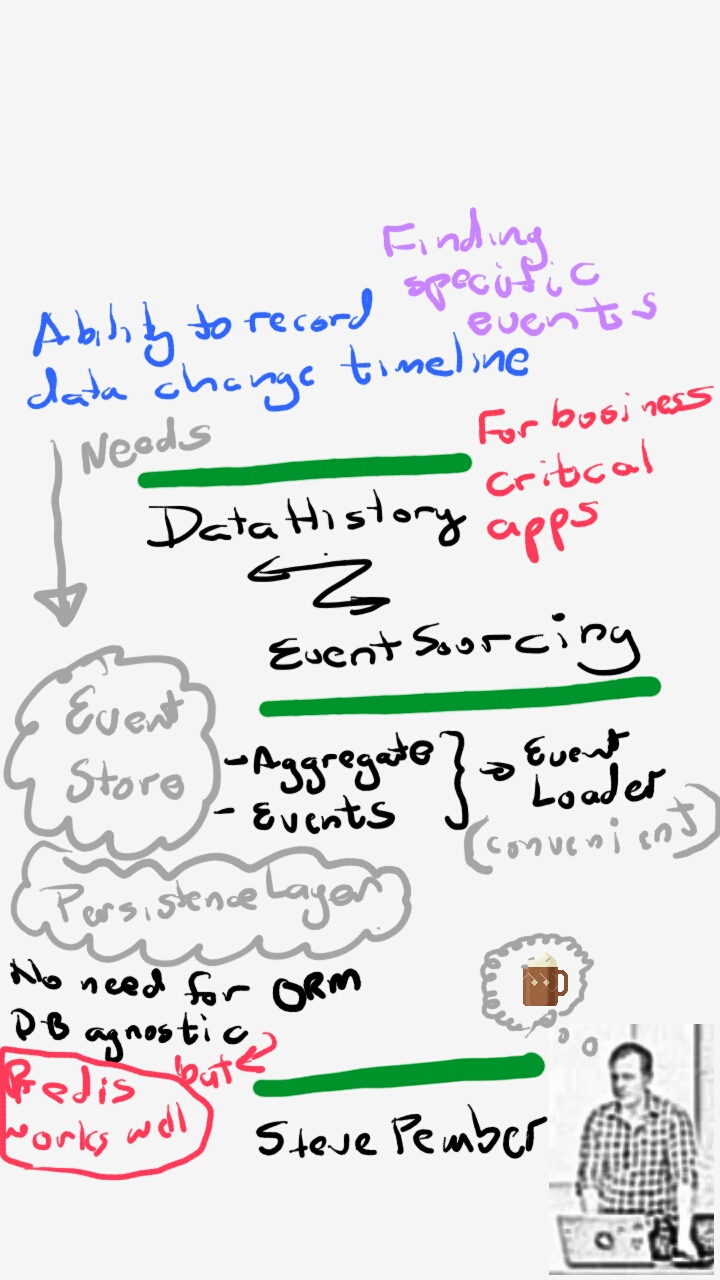 Finding
specific
events
Ability to record
data change timeline
Needs
For business
critical
apps
Data History
Event Sourcing
Event
Store
- Aggregate
- Events
Event
Loader
(convenient)
Persistence Layer
No need for ORM
DB agnostic
but
Redis
works well
Steve Pember